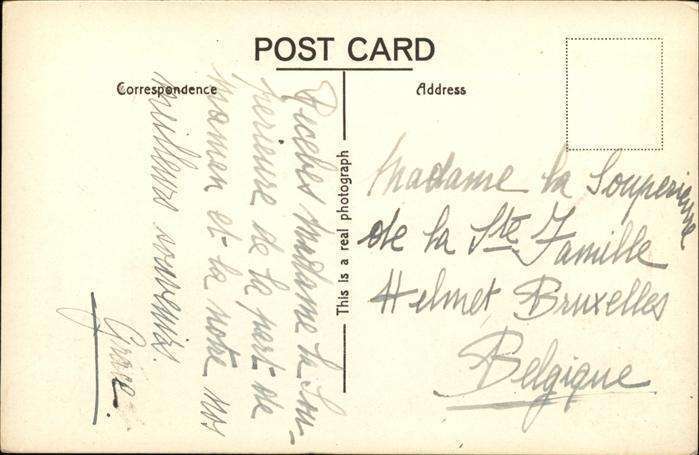 POST CARD
Correspondence
Address
This is a real photograph
Recebes Madame la Sou-
perieure de la part de
maman et la notre nos
meilleurs souvenirs.
Grace.
Madame la Souperieure
de la Ste Famille
Helmet Bruxelles
Belgique